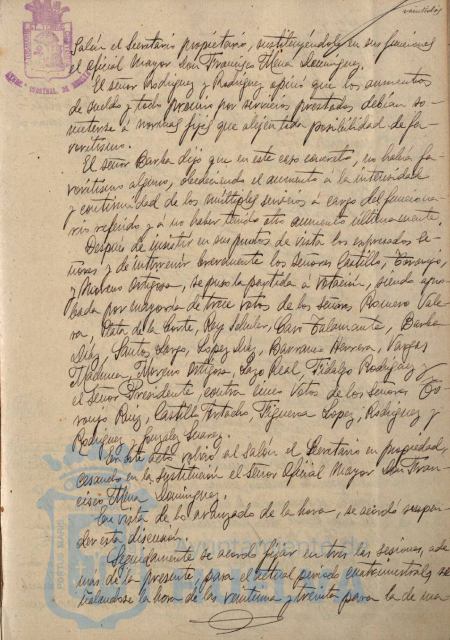 veintidós
Salón el Secretario propietario, sustituyéndole en sus funciones
el Oficial Mayor Don Francisco Mena Domínguez.
El señor Rodríguez y Rodríguez opinó que los aumentos
de sueldo y todo premio por servicios prestados debían so-
meterse á normas fijas que alejen toda posibilidad de fa-
voritismo.
El señor Barba dijo que en este caso concreto, no había fa-
voritismo alguno, obedeciendo el aumento á la intensidad
y continuidad de los múltiples servicios á cargo del funciona-
rio referido y á no haber tenido otro aumento últimamente.
Después de insistir en sus puntos de vista los expresados Se-
ñores y de intervenir brevemente los Señores Castillo,
y Moreno Ortigosa, se puso la partida á votación, siendo apro-
bada por mayoría de trece votos de los señores, Romero Vale-
ra, Plata de la Corte, Rey Caro Talamante, Barba
Díaz, Santos Largo, López Díaz, Barranco Herrera, Vargas
Maduma, Moreno Ortigosa, Lazo Real, Fidalgo Rodríguez y
el señor Presidente, contra cinco votos de los Señores
Ruiz, Castillo Figueroa López, Rodríguez y
Rodríguez y González Suarez.
En este acto volvió al Salón el Secretario en propiedad,
cesando en la sustitución el señor Oficial Mayor Don Fran-
cisco Mena Domínguez.
En vista de lo avanzado de la hora, se acordó suspen-
der esta discusión.
Seguidamente se acordó fijar en tres las sesiones, ade-
más de la presente, para el actual período cuatrimestral, se-
ñalándose la hora de las veintiuna y treinta para la de ma-